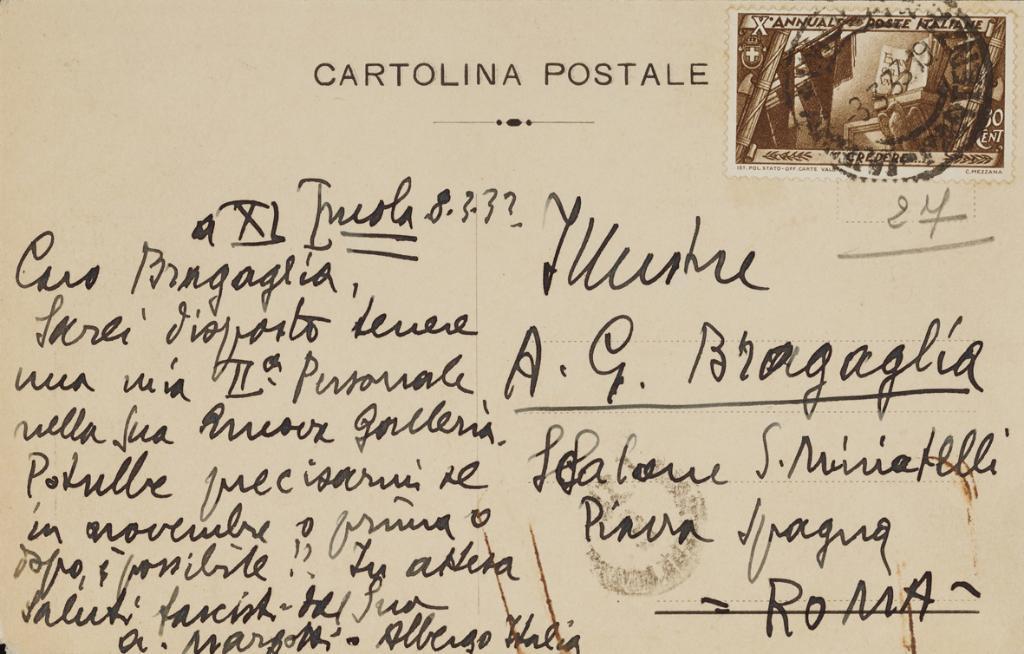 CARTOLINA POSTALE
X° ANNUALE POSTE ITALIANE
30 CENT
CREDERE
IST. POL. STATO-OFF. CARTE VAL
C. MEZZANA
27
a XI Imola 8.3.33
Caro Bragaglia,
Sarei disposto tenere
una mia IIª Personale
nella Sua nuova Galleria.
Potrebbe precisarmi se
in novembre o prima o
dopo, è possibile!! In attesa
saluti fascisti dal Suo
a. Margotti - Albergo Italia
Illustre
A. G. Bragaglia
Salone S. Miniatelli
Piazza Spagna
- ROMA -